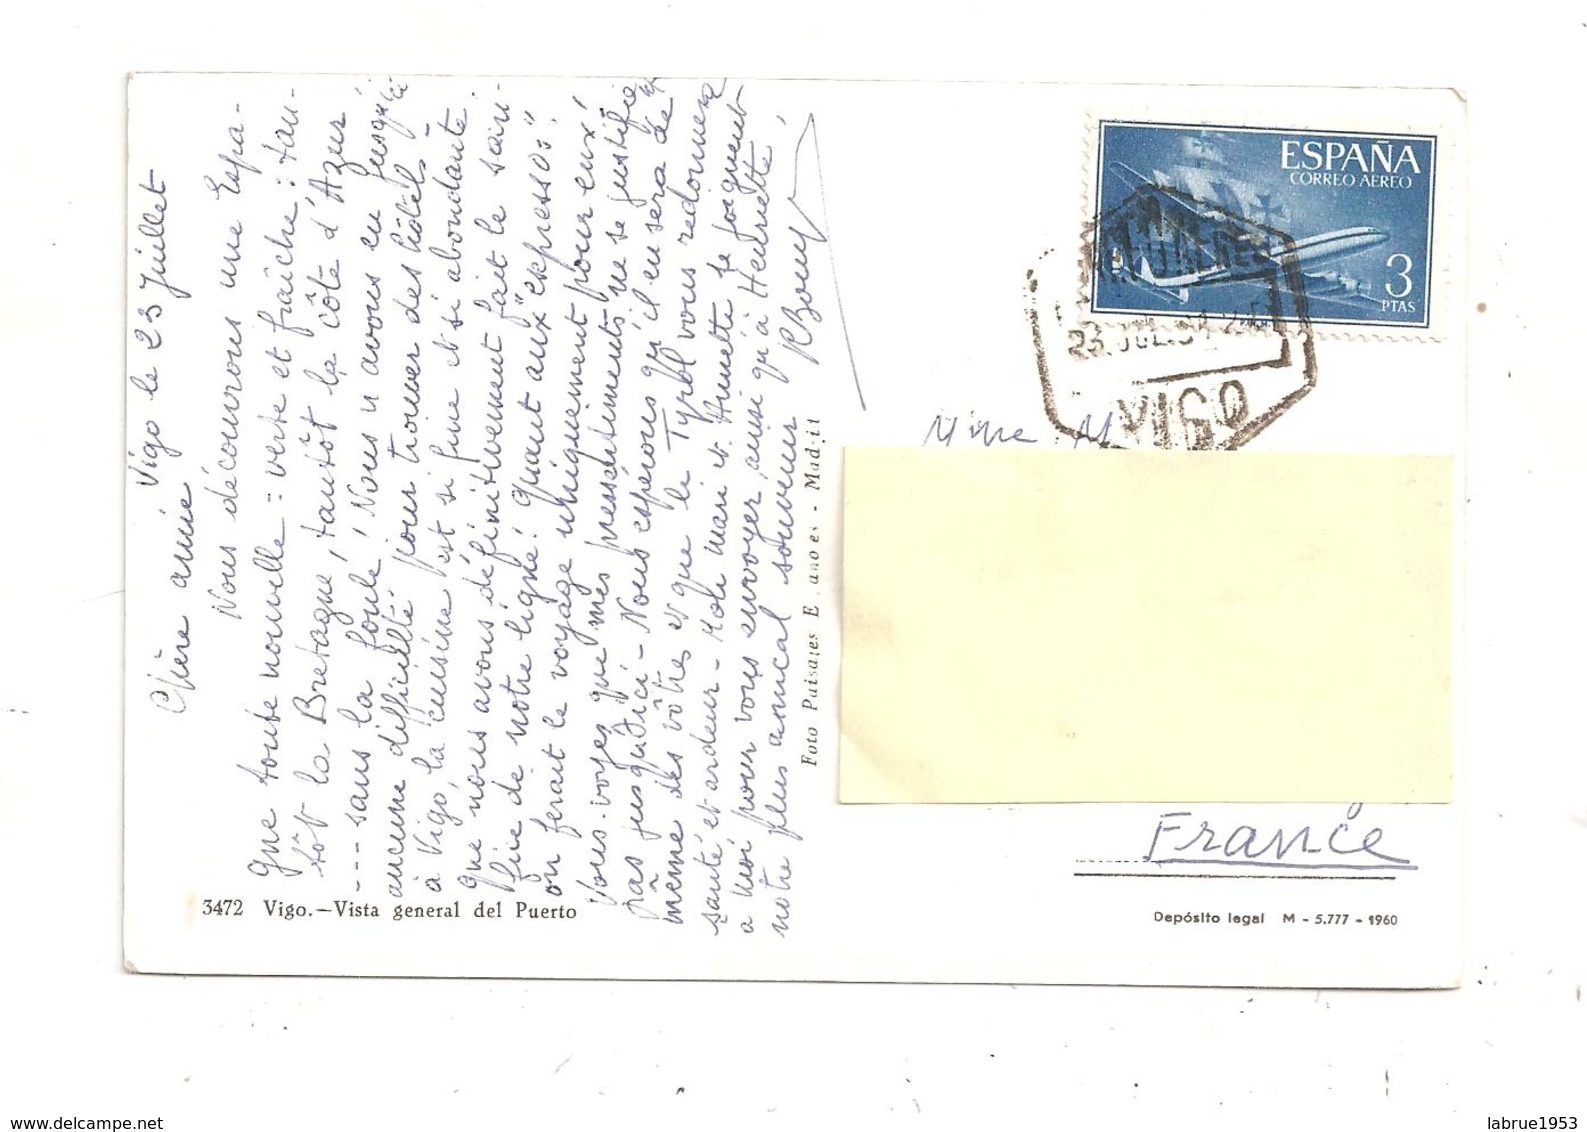 Vigo le 23 Juillet
Chère amie
Nous découvrons une Espa-
gne toute nouvelle = verte et fraîche : tan-
tôt la Bretagne, tantôt la côte d'Azur
--- sans la foule, Nous n'avons eu jusqu'ici
aucune difficulté pour trouver des hôtels -
à Vigo, la cuisine est si fine et si abondante
que nous avons définitivement fait le sacri-
fice de notre ligne! quant aux "expressos",
on ferait le voyage uniquement pour eux!
Vous voyez que mes pressentiments ne se justifient
pas jusqu'ici - Nous espérons qu'il en sera de
même des vôtres et que le Tyrol vous redonnera
santé et ardeur - Mon mari et Annette se joignent
à moi pour vous envoyer, ainsi qu'à Henriette,
notre plus amical souvenir
Foto Paisajes E anoes - Madrid
3472 Vigo.—Vista general del Puerto
ESPAÑA
CORREO AEREO
3
PTAS
23 JUL.
VIGO
Mme M
France
Depósito legal M - 5.777 - 1960
www.delcampe.net
labrue1953